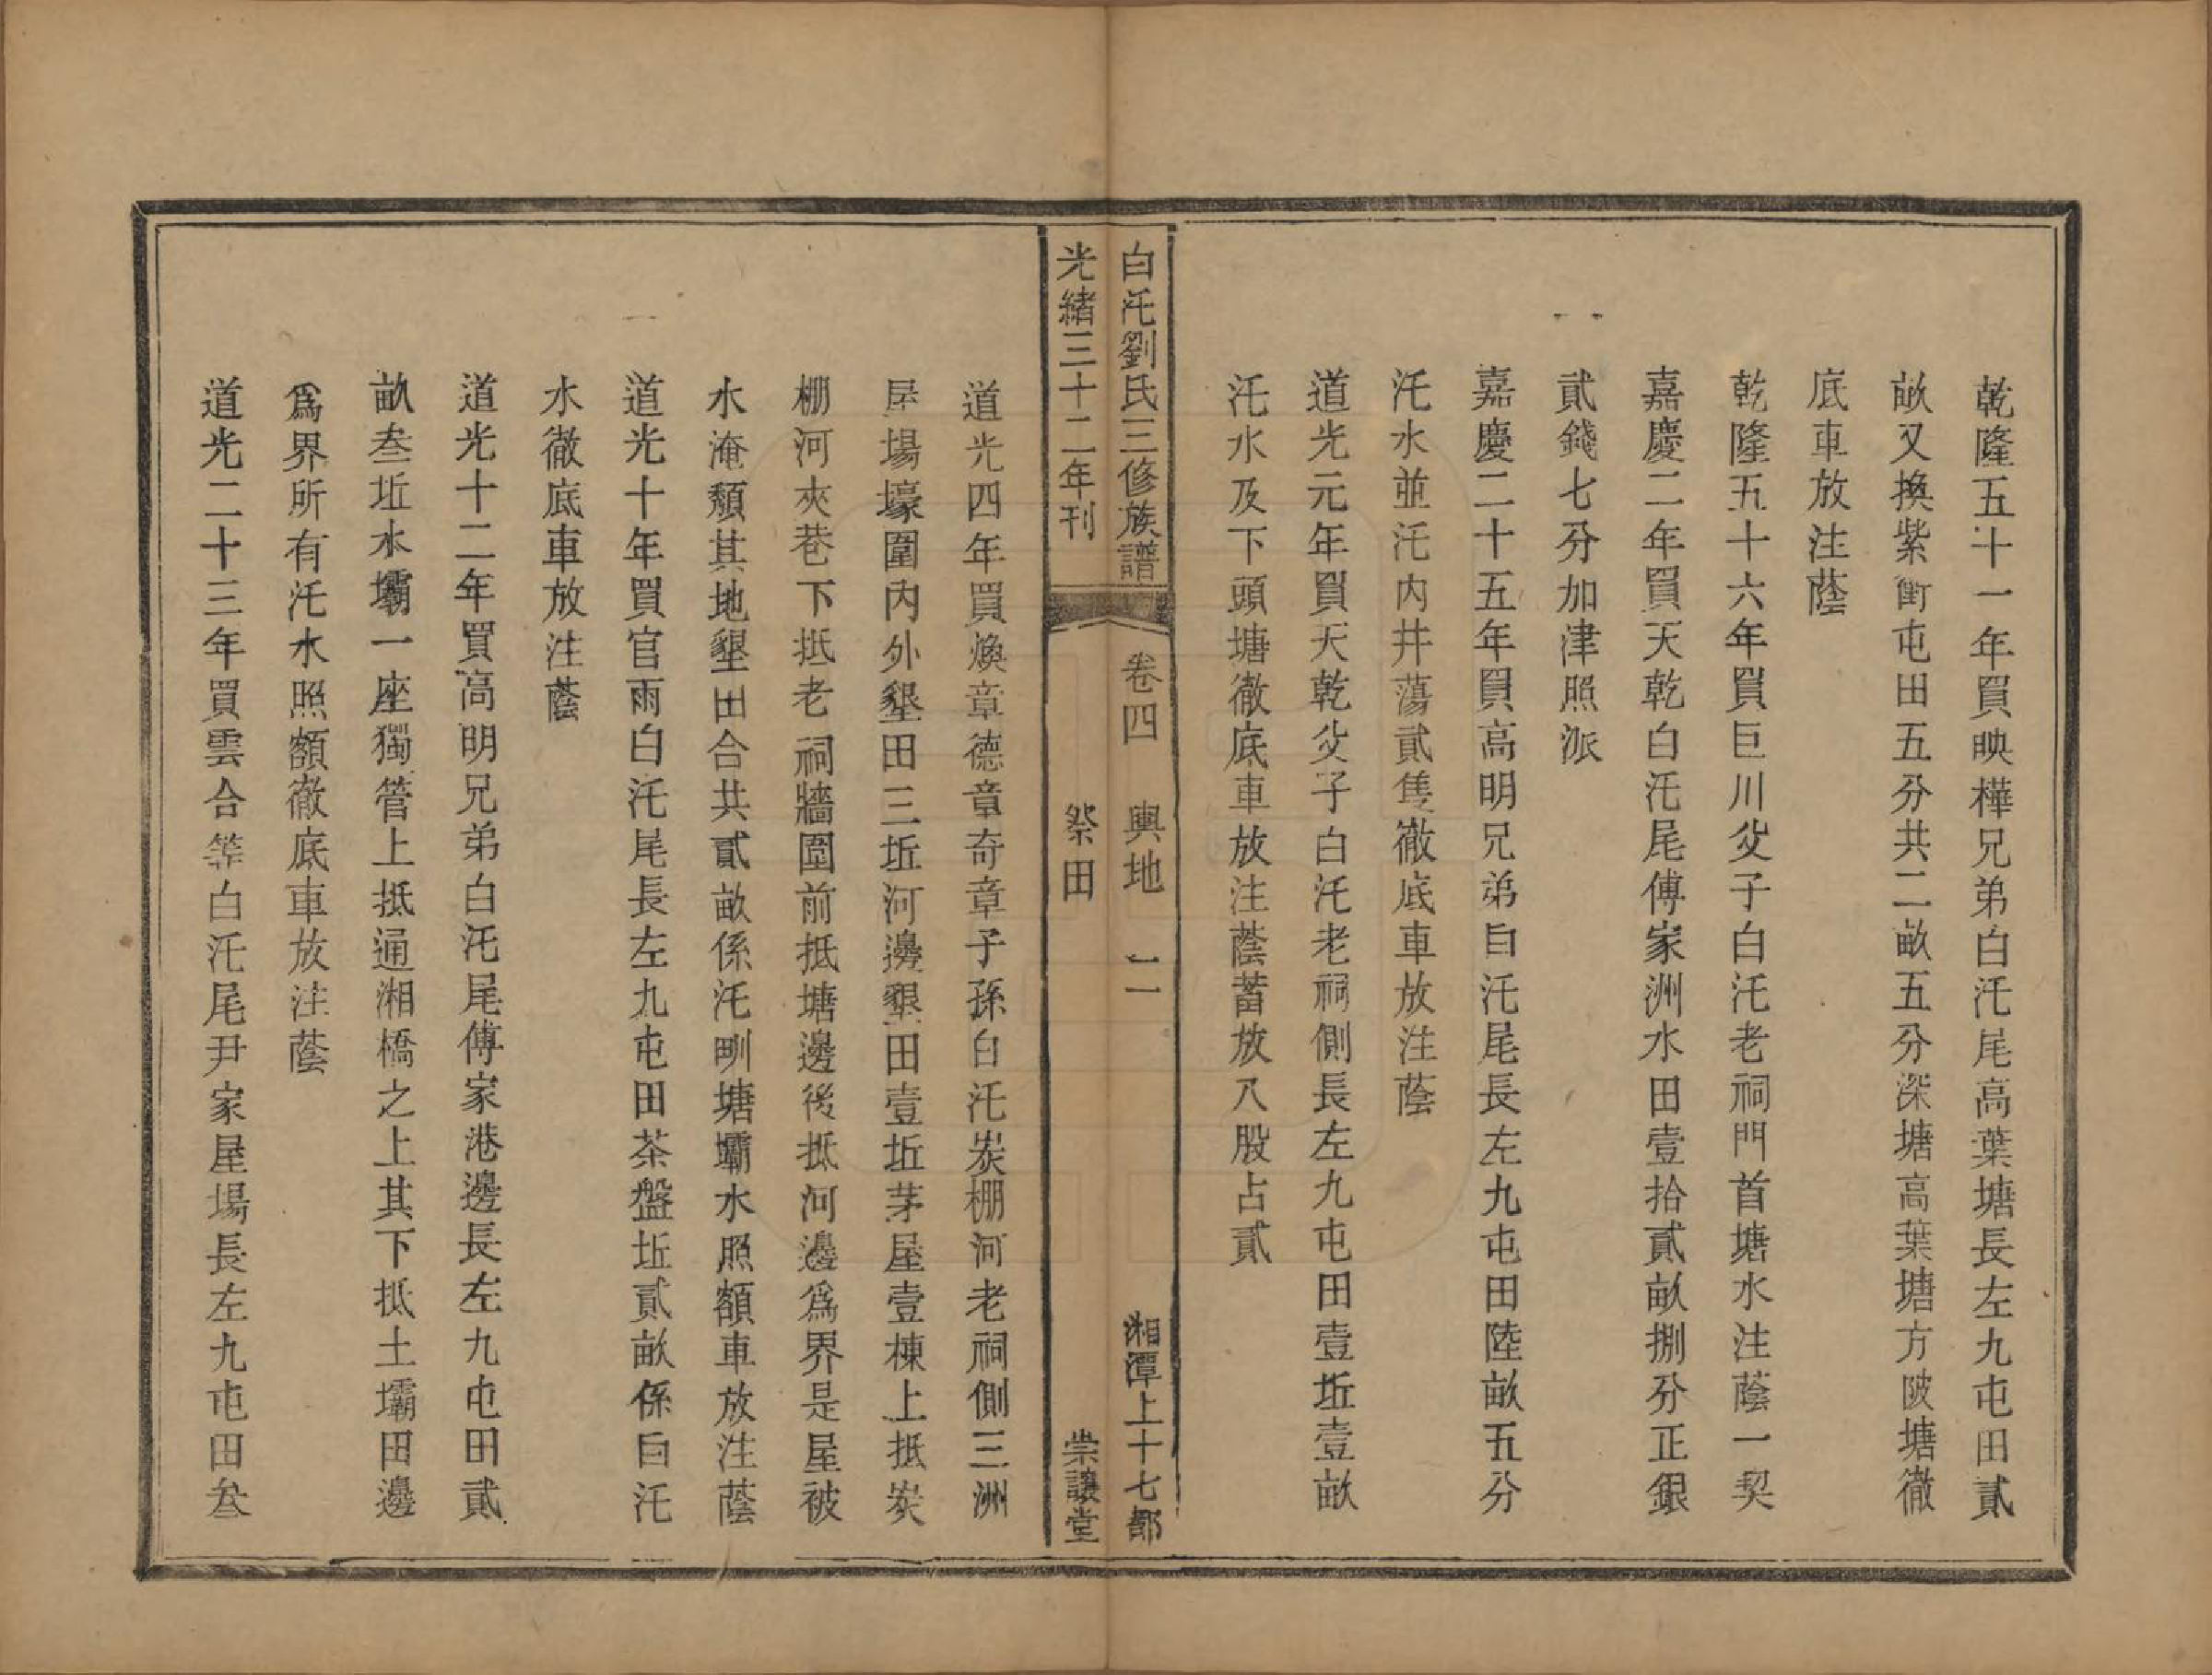 乾隆五十一年買映樺兄弟白汑尾高葉塘長左九屯田貳
畝又換紫衝屯田五分共二畝五分深塘高葉塘方陂塘徹
底車放注蔭
乾隆五十六年買巨川父子白汑老祠門首塘水注蔭一契
嘉慶二年買天乾白汑尾傅家洲水田壹拾貳畝捌分正銀
貳錢七分加津照派
嘉慶二十五年買高明兄弟白汑尾長左九屯田陸畝五分
汑水並汑内井蕩貳隻徹底車放注蔭
道光元年買天乾父子白汑老祠側長左九屯田壹坵壹畝
汑水及下頭塘徹底車放注蔭蓄放八股占貳
白汑劉氏三修族譜 卷四 輿地 二 湘潭上十七都
光緒三十二年刊 祭田 崇讓堂
道光四年買煥章德章奇章子孫白汑炭棚河老祠側三洲
屋場壕圍内外墾田三坵河邊墾田壹坵茅屋壹棟上抵炭
棚河夾巷下抵老祠牆圍前抵塘邊後抵河邊爲界是屋被
水淹頽其地墾田合共貳畝係汑甽塘壩水照額車放注蔭
道光十年買官雨白汑尾長左九屯田茶盤坵貳畝係白汑
水徹底車放注蔭
道光十二年買高明兄弟白汑尾傅家港邊長左九屯田貳
畝叁坵水壩一座獨管上抵通湘橋之上其下抵土壩田邊
爲界所有汑水照額徹底車放注蔭
道光二十三年買雲合等白汑尾尹家屋場長左九屯田叁